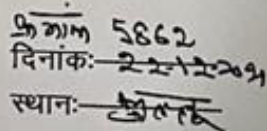 क्रमांक 5862
दिनांकः- 22-12-2021
स्थानः-